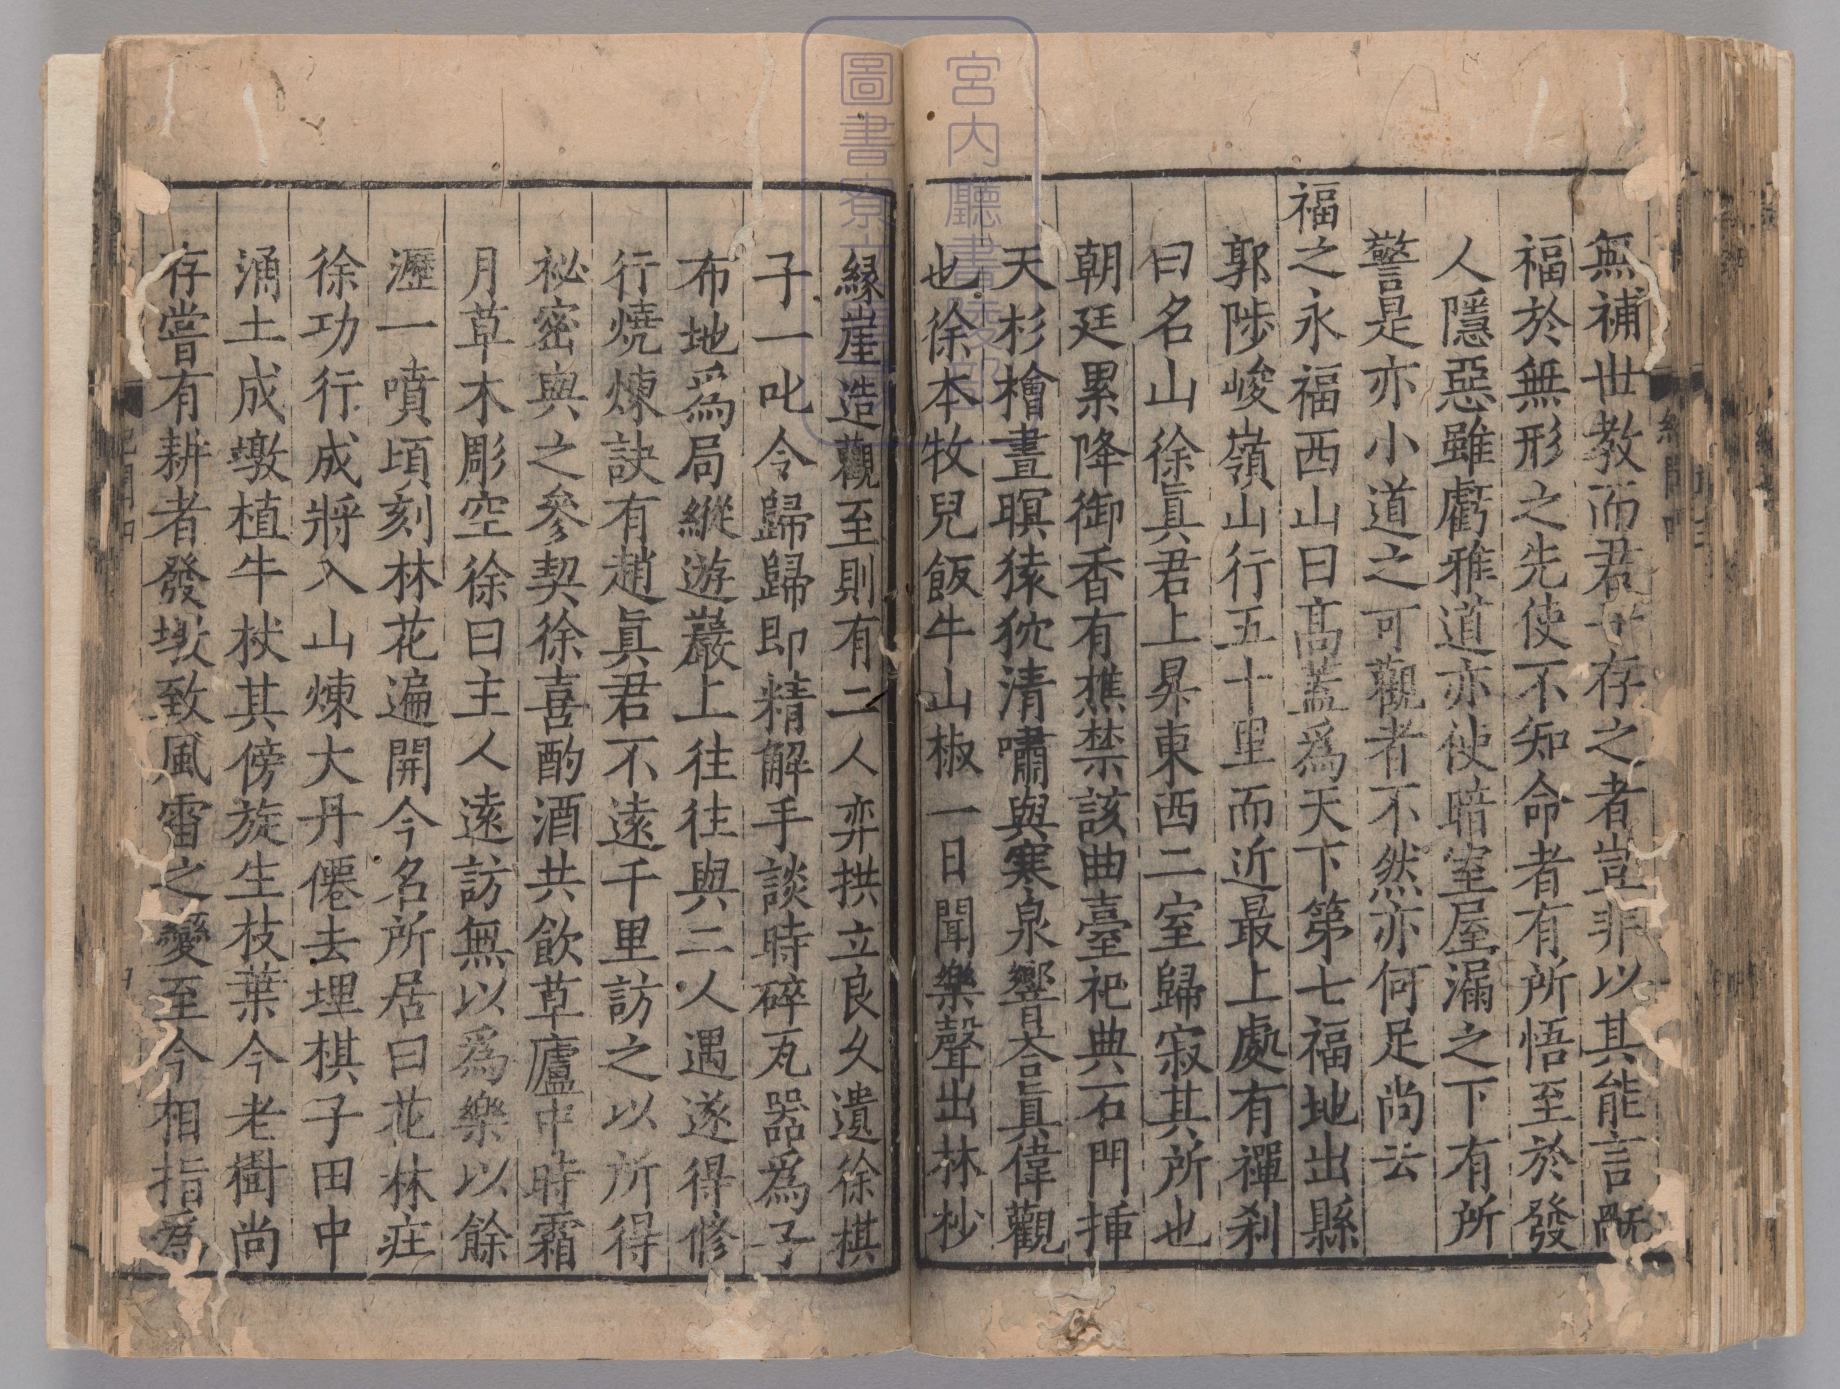 無補世教而君子存之者豈非以其能言
福於無形之先使不知命者有所悟至於發
人隱惡雖虧雅道亦使暗室屋漏之下有所
警是亦小道之可觀者不然亦何足尚云
福之永福西山曰高蓋爲天下第七福地出縣
郭陟峻嶺山行五十里而近最上處有禪刹
曰名山徐眞君上昇東西二室歸寂其所也
朝廷累降御香有樵禁該曲臺祀典石門挿
天杉檜晝暝猿狖清嘯與寒泉響荅眞偉觀
也徐本牧兒飯牛山椒一日聞樂聲出林杪
縁崖造觀至則有二人弈拱立良久遺徐棋
子一叱令歸歸即精解手談時碎瓦器爲子
布地爲局縱遊巖上往往與二人遇遂得修
行燒煉訣有趙眞君不遠千里訪之以所得
祕密與之參契徐喜酌酒共飲草廬中時霜
月草木彫空徐曰主人遠訪無以爲樂以餘
瀝一噴頃刻林花遍開今名所居曰花林庄
徐功行成將入山煉大丹僊去埋棋子田中
涌土成墩植牛杖其傍旋生枝葉今老樹尚
存嘗有耕者發墩致風雷之變至今相指爲
宮内廳書陵部
圖書寮文庫